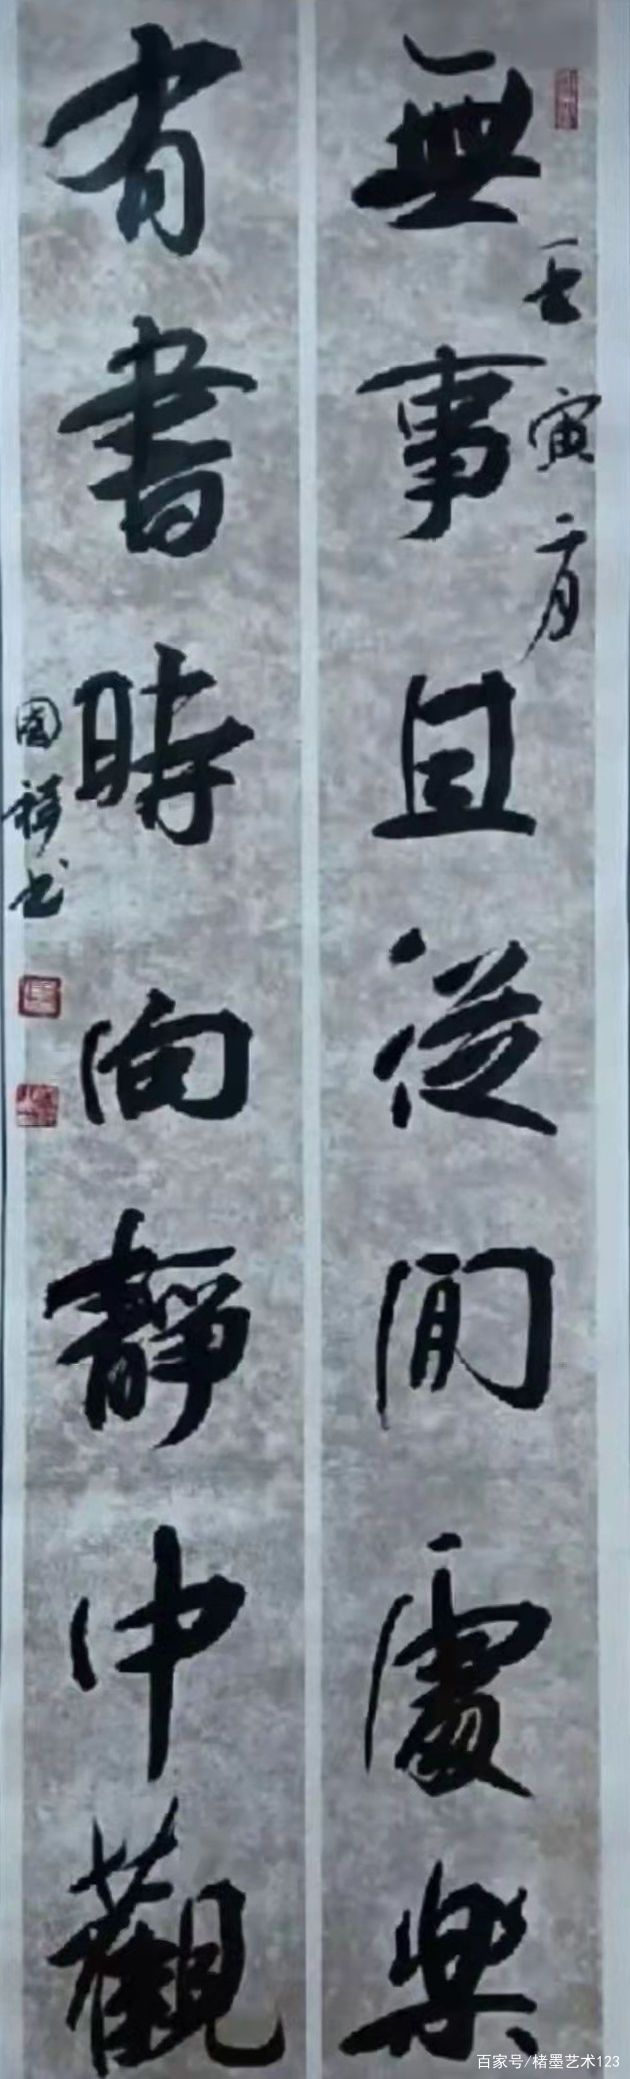 無事且從閒處樂
壬寅二月
有書時向靜中觀
國祥书
百家号/楮墨艺术123